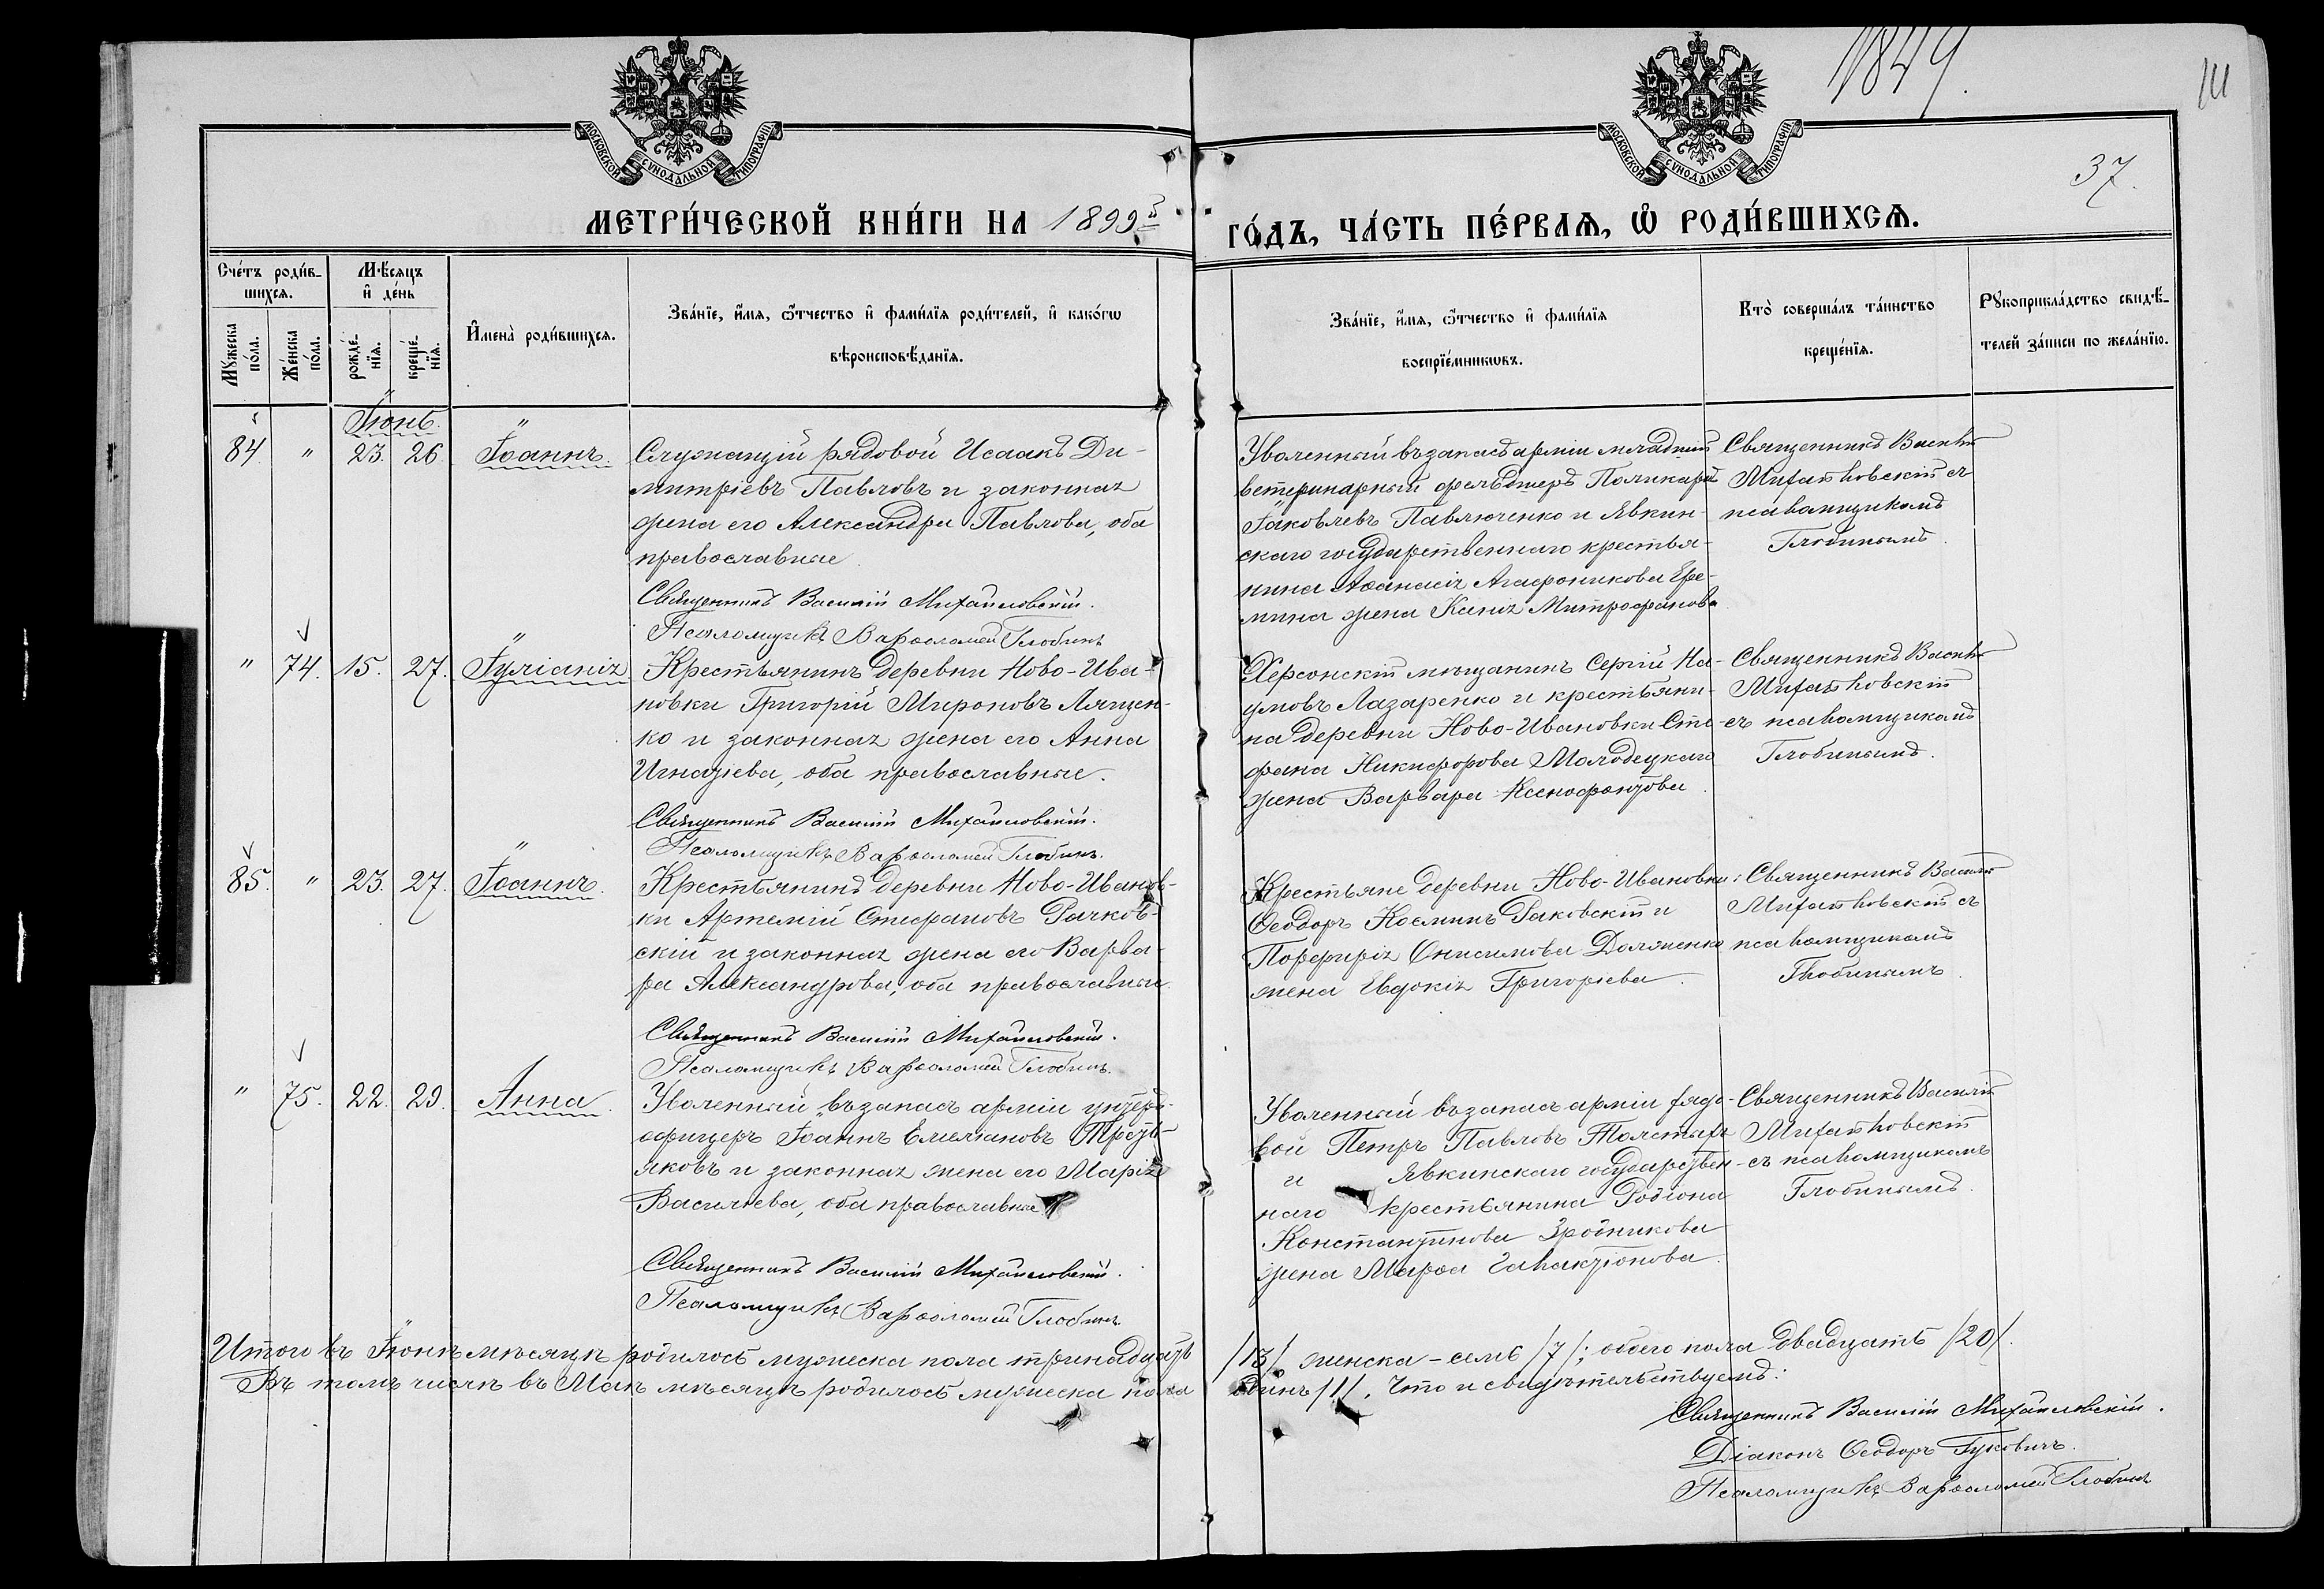 1849.
111
37.
МОСКОВСКОЙ СѴНОДАЛЬНОЙ ТИПОГРАФІИ
МОСКОВСКОЙ СѴНОДАЛЬНОЙ ТИПОГРАФІИ
МЕТРИ́ЧЕСКОЙ КНИ́ГИ НА 1899й
ГО́ДЪ, ЧА́СТЬ ПЕ́РВАѦ, Ѡ҆ РОДИ́ВШИХСѦ.
Сче́тъ роди́в-
шихсѧ.
Мѣ́сѧцъ
и҆ де́нь
Мꙋ́жеска по́ла.
Же́нска по́ла.
рожде́-нїѧ.
креще́-нїѧ.
И҆мена̀ роди́вшихсѧ.
Зва́нїе, и҆́мѧ, ѻ҆́тчество и҆ фами́лїѧ роди́телей, и҆ како́гѡ
вѣроисповѣ́данїѧ.
Зва́нїе, и҆́мѧ, ѻ҆́тчество и҆ фами́лїѧ
воспрїе́мникѡвъ.
Кто̀ соверша́лъ та́инство
креще́нїѧ.
Рꙋкоприкла́дство свидѣ́-
телей за́писи по жела́нїю.
Іюнь.
84. " 23. 26. Іоаннъ.
Служащій рядовой Исаакъ Ди-
митріевъ Павловъ и законная
жена его Александра Павлова, оба
православные.
Священникъ Василій Михайловскій.
Псаломщикъ Варѳоломей Глобинъ
Уволенный въ запасъ арміи младшій
ветеринарный фельдшеръ Поликарпъ
Іаковлевъ Павлюченко и Явкин-
скаго государственнаго крестья-
нина Аѳанасія Агафоникова Ере-
мина жена Ксенія Митрофанова
Священникъ Василій
Михайловскій съ
псаломщикомъ
Глобинымъ.
" 74. 15. 27. Іуліанія
Крестьянинъ деревни Ново-Ива-
новки Григорій Мироновъ Лящен-
ко и законная жена его Анна
Игнатіева, оба православные.
Священникъ Василій Михайловскій.
Псаломщикъ Варѳоломей Глобинъ.
Херсонскій мѣщанинъ Сергій На-
умовъ Лазаренко и крестьяни-
на деревни Ново-Ивановки Сте-
фана Никифорова Молодецкаго
жена Варвара Ксенофонтова.
Священникъ Василій
Михайловскій
съ псаломщикомъ
Глобинымъ.
85. " 23. 27. Іоаннъ.
Крестьянинъ деревни Ново-Иванов-
ки Артемій Стефановъ Рачков-
скій и законная жена его Варва-
ра Александрова, оба православные.
Священникъ Василій Михайловскій.
Псаломщикъ Варѳоломей Глобинъ.
Крестьяне деревни Ново-Ивановки:
Ѳеодоръ Косминъ Раковскій и
Порфирія Онисимова Долженко
жена Евдокія Григоріева.
Священникъ Василій
Михайловскій съ
псаломщикомъ
Глобинымъ.
" 75. 22. 29. Анна.
Уволенный въ запасъ арміи унтеръ-
офицеръ Іоаннъ Емеліановъ Трезв-
яковъ и законная жена его Марія
Василіева, оба православные
Священникъ Василій Михайловскій.
Псаломщикъ Варѳоломей Глобинъ
Уволенный въ запасъ арміи рядо-
вой Петръ Павловъ Толстыхъ
и Явкинскаго государствен-
наго крестьянина Родіона
Константинова
жена Марѳа Галактіонова.
Священникъ Василій
Михайловскій
съ псаломщикомъ
Глобинымъ.
Итого въ Іюнѣ мѣсяцѣ родилось мужеска пола тринадцать /13/ женска – семь /7/; обоего пола двадцать /20/.
Въ томъ числѣ въ Маѣ мѣсяцѣ родилось мужеска пола одинъ /1/. Что и свидѣтельствуемъ:
Священникъ Василій Михайловскій.
Діаконъ Ѳеодоръ Гуковичъ.
Псаломщикъ Варѳоломей Глобинъ